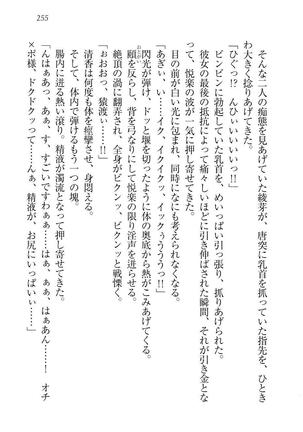 255
そんな二人の痴態を見あげていた綾芽が、唐突に乳首を抓っていた指先を、ひとき
わ大きく捻りあげてきた。
「ひぐっ!?　んひぃぃいいいっ!!」
ビンビンに勃起していた乳首を、めいっぱい引っ張り、抓りあげられた。
彼女の最後の抵抗によって痛々しいほどに引き伸ばされた瞬間、それが引き金とな
って、悦楽の波が一気に押し寄せてきた。
目の前が白い光に包まれ、同時になにも考えられなくなる。
「あぎぃ、い……イク、イクイクッ、イックぅううっ!!」
閃光が弾け、ドッと堰を切ったように体の奥底から熱がこみあげてくる。
頤を反らし、背を弓なりにして悦楽の限り淫声を迸らせる。
絶頂の渦に翻弄され、全身がビクンッとビクンッと戦慄く。
「おおおっ、猿渡……っ!!」
清香は何度も体を痙攣させ、身悶える。
そして、体内で弾けるもう一つの塊。
腸内に迸る熱い滾り。精液が濁流となって押し寄せてきた。
「んはぁあっ、あぁ、す、すごいですわぁぁ……はぁ、ぁぁ、はぁあん……!　オチ
×ポ様、ドクドクッって……んぁ、精液が、お尻にいっぱいぃ……」